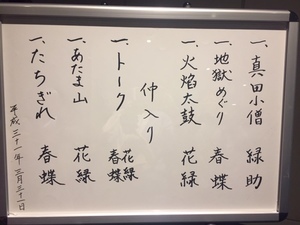 一、真田小僧 緑助
一、地獄めぐり 春蝶
一、火焰太鼓 花緑
仲入り
一、トーク 花緑 春蝶
一、あたま山 花緑
一、たちぎれ 春蝶
平成三十一年 三月三十一日